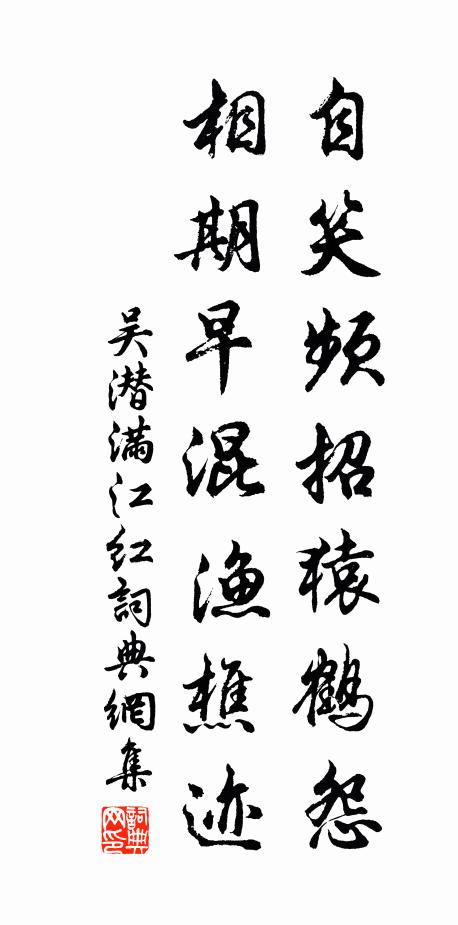 自笑频招猿鹤怨
相期早混渔樵迹
吴潜满江红詞典網集
詞典
网印